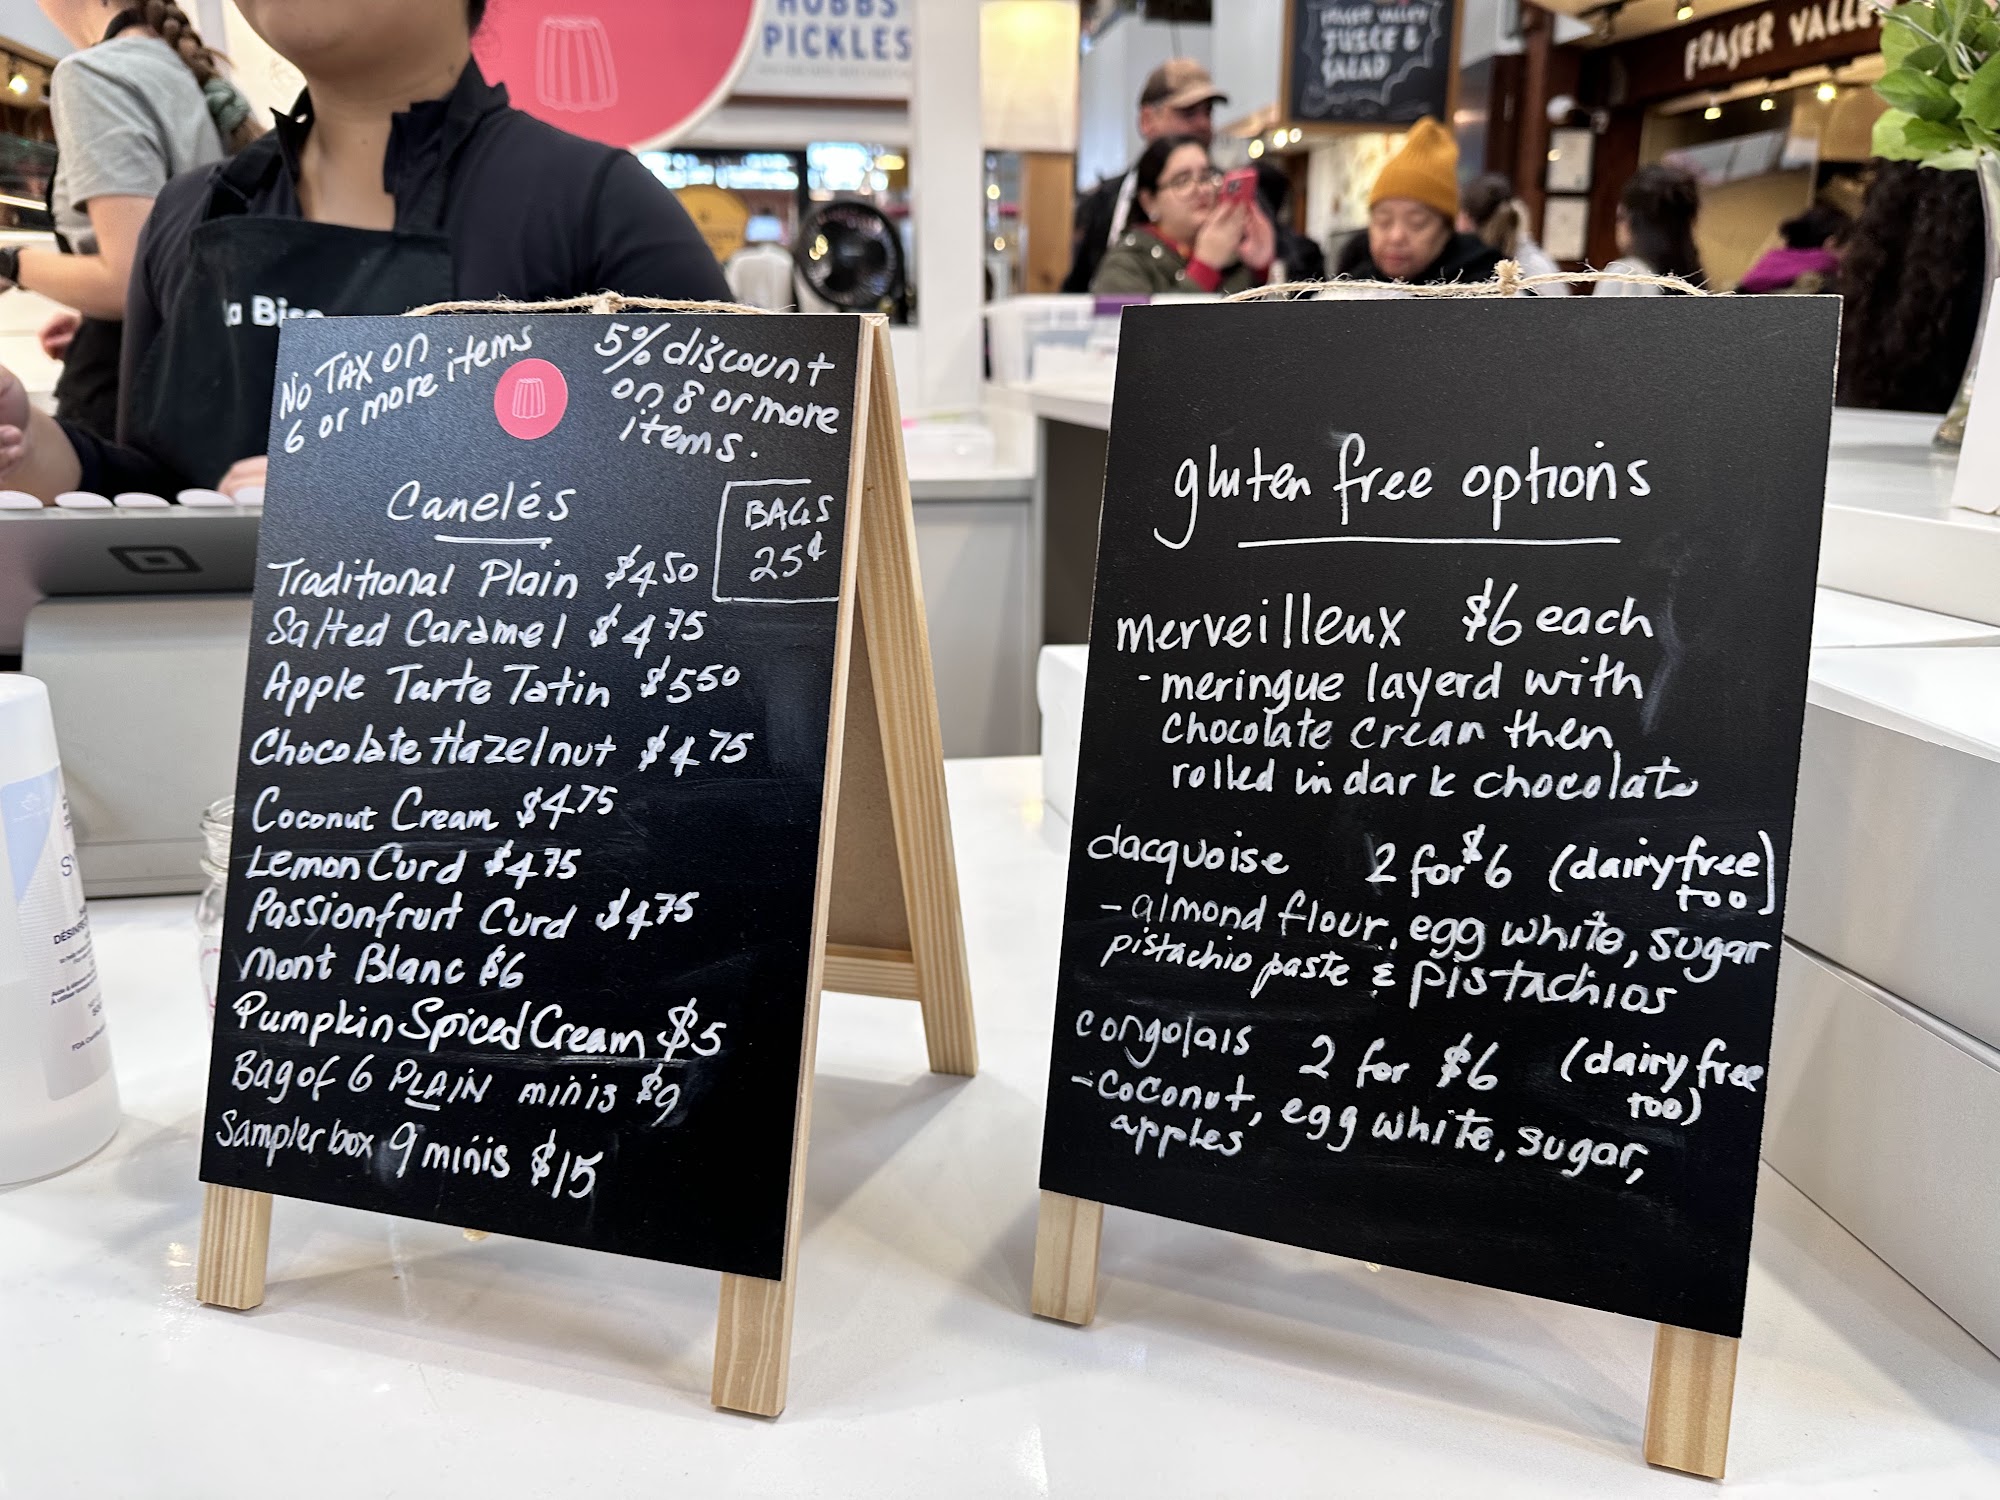 HOBBS
PICKLES
FRASER VALLEY
JUICE &
SALAD
FRASER VALLE
La Bise
No TAX on
6 or more items
5% discount
on 8 or more
items.
BAGS
25¢
Canelés
Traditional Plain $4.50
Salted Caramel $4.75
Apple Tarte Tatin $5.50
Chocolate Hazelnut $4.75
Coconut Cream $4.75
Lemon Curd $4.75
Passionfruit Curd $4.75
Mont Blanc $6
Pumpkin Spiced Cream $5
Bag of 6 PLAIN minis $9
Sampler box 9 minis $15
gluten free options
merveilleux $6 each
- meringue layerd with
chocolate cream then
rolled in dark chocolate
dacquoise 2 for $6 (dairy free
too)
- almond flour, egg white, sugar
pistachio paste & pistachios
congolais 2 for $6 (dairy free
too)
- coconut, egg white, sugar,
apples